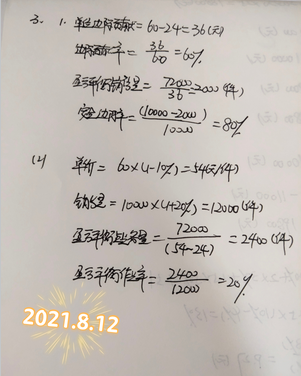 3. 1. 单位边际贡献=60-24=36(元)
边际贡献率=36/60=60%
盈亏平衡销售量=72000/36=2000(件)
安全边际率=(10000-2000)/10000=80%
(2) 单价=60×(1-10%)=54(元/件)
销售量=10000×(1+20%)=12000(件)
盈亏平衡业务量=72000/(54-24)=2400(件)
盈亏平衡作业率=2400/12000=20%
2021.8.12